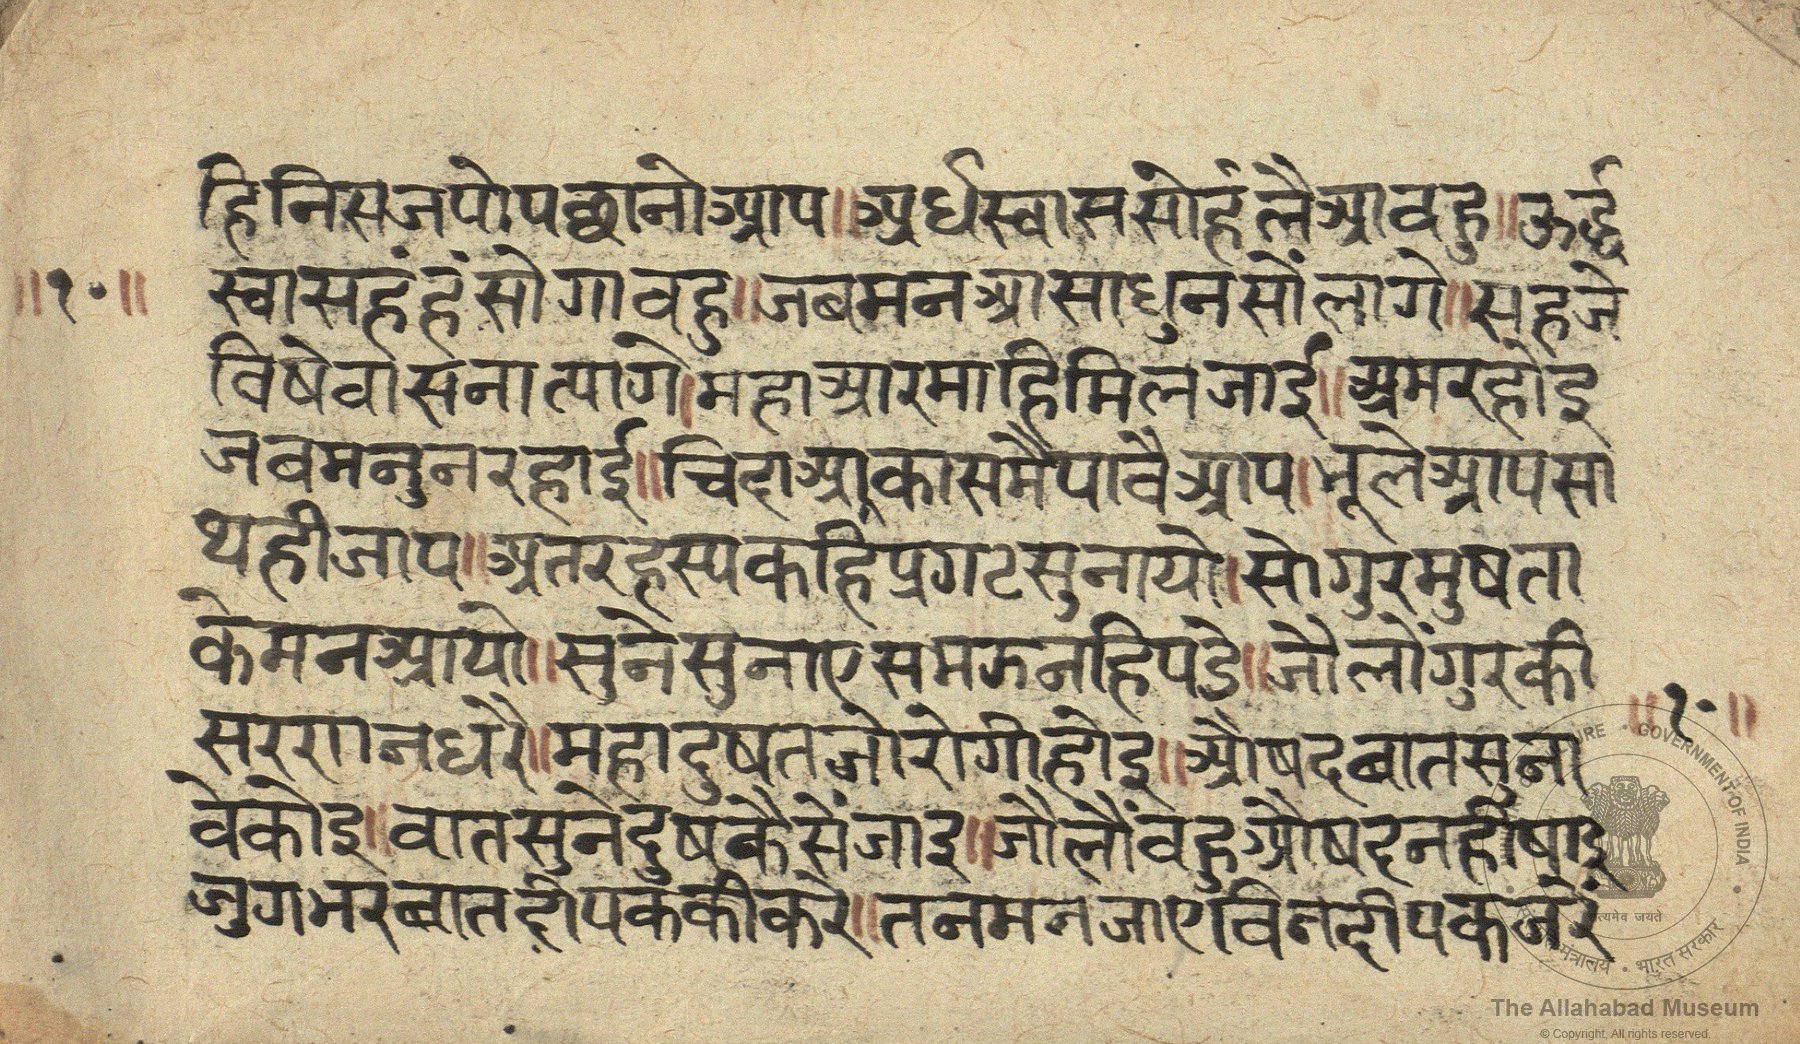 हिनिसजपोपछानोआप॥अर्धस्वाससोहंलैआवहु॥ऊर्द्ध
॥१०॥ स्वासहंहंसोगावहु॥जबमनआसाधुनसोंलागे॥सहजे
विषेवासनात्यागे।महाआरमाहिमिलजाई॥अमरहोइ
जबमनुनरहाई॥चिदाआकासमैपावैआप।भूलेआपसा
थहीजाप॥अतरहस्यकहिप्रगटसुनायो।सोगुरमुषता
केमनआयो॥सुनेसुनाएसमझनहिपडे॥जौलोंगुरकी
सरणानधरै॥महादुषतजोरोगीहोइ॥औषदबातसुना ॥१०॥
वेकोइ॥वातसुनेदुषकैसेंजाइ॥जौलौंवहुऔषदनहीषाइ
जुगभरबातदीपककीकरे॥तनमनजाएविनदीपकजरें
GOVERNMENT OF INDIA
सत्यमेव जयते
भारत सरकार
The Allahabad Museum
© Copyright, All rights reserved.